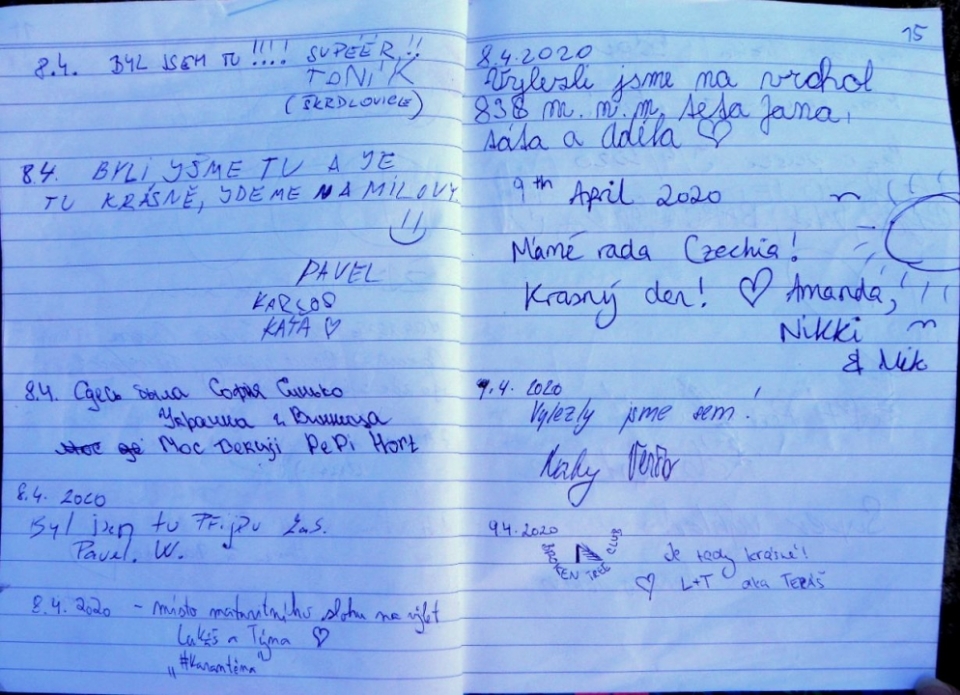 8.4. BYL JSEM TU !!!! SUPEÉR!!
TONIK
(ŠKRDLOVICE)
8.4. BYLI JSME TU A JE
TU KRÁSNĚ, JDEME NA MILOVY
PAVEL
KARLOS
KÁŤA ♡
8.4. Сдесь была София Синько
Украина г Винница
Moc Děkuji PePi Hort
8.4. 2020
Byl jsem tu Přijdu zas.
Pavel. W.
8.4. 2020 - místo maturitního slohu na výlet
Lukáš a Týna ♡
„#Karanténa"
15
8.4.2020
Vylezli jsme na vrchol
838 m. n. m. teta Jana,
táta a Adéla ♡
9th April 2020
Mámé rada Czechia!
Krasný den! ♡ Amanda,
Nikki
& Mik
9.4. 2020
Vylezly jsme sem!
9.4.2020
BROKEN TREE CLUB
Je tady krásně!
♡ L+T aka TERÁŠ